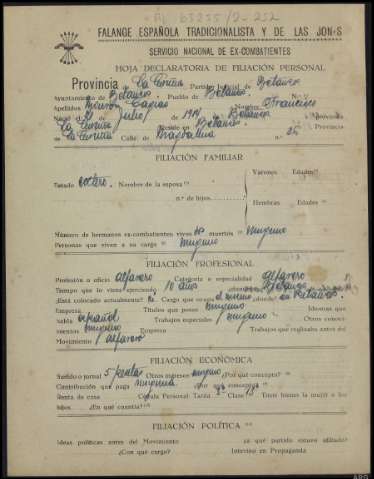 FALANGE ESPAÑOLA TRADICIONALISTA Y DE LAS JON-S
SERVICIO NACIONAL DE EX-COMBATIENTES
HOJA DECLARATORIA DE FILIACIÓN PERSONAL
Provincia de La Coruña Partido Judicial de Betanzos
Ayuntamiento de Betanzos Pueblo de Betanzos
Apellidos Nombre Francisco
Nació el de Julio de en Betanzos Provincia
La Coruña Reside en Betanzos
La Coruña Calle de Magdalena n.º
FILIACIÓN FAMILIAR
Estado soltero. Nombre de la esposa
Varones Edades
n.º de hijos
Hembras Edades
Número de hermanos ex-combatientes vivos muertos ninguno
Personas que viven a su cargo ninguno
FILIACIÓN PROFESIONAL
Profesión u oficio alfarero Categoría o especialidad alfarero
Tiempo que lo viene ejerciendo 10 años ¿dónde? Betanzos
¿Está colocado actualmente? Cargo que ocupa el mismo ¿dónde? en Betanzos.
Empresa Títulos que posee ninguno Idiomas que
habla español Trabajos especiales ninguno Otros conoci-
mientos ninguno Empresa Trabajos que realizaba antes del
Movimiento alfarero
FILIACIÓN ECONÓMICA
Sueldo o jornal 5 pesetas Otros ingresos ninguno ¿Por qué concepto?
Contribución que paga ninguna ¿por qué concepto?
Renta de casa Cédula Personal Tarifa Clase 13 Tiene bienes la mujer o los
hijos ¿En qué cuantía?
FILIACIÓN POLÍTICA
Ideas políticas antes del Movimiento ¿a qué partido estuvo afiliado?
¿Con qué cargo? Intervino en Propaganda